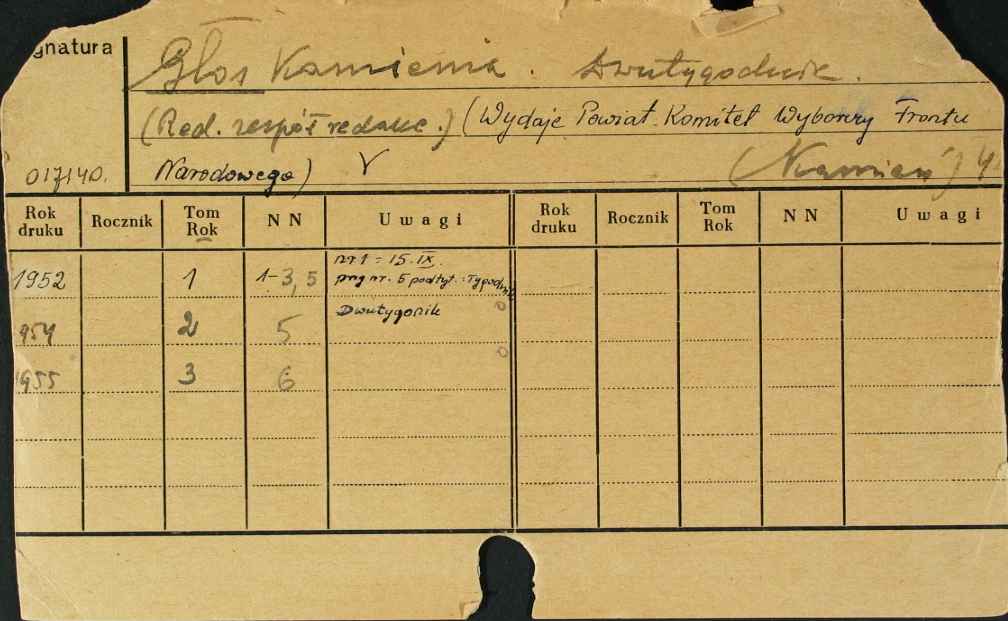 gnatura
Głos Kamienia. Dwutygodnik.
(Red. zespół redakc.) (Wydaje Powiat. Komitet Wyborczy Frontu
017140. Narodowego) (Kamień) 4
Rok druku Rocznik Tom Rok NN Uwagi Rok druku Rocznik Tom Rok NN Uwagi
nr 1 = 15.IX.
1952 1 1-3, 5 przy nr. 5 podtyt.: Tygodnik
Dwutygonik
954 2 5
1955 3 6